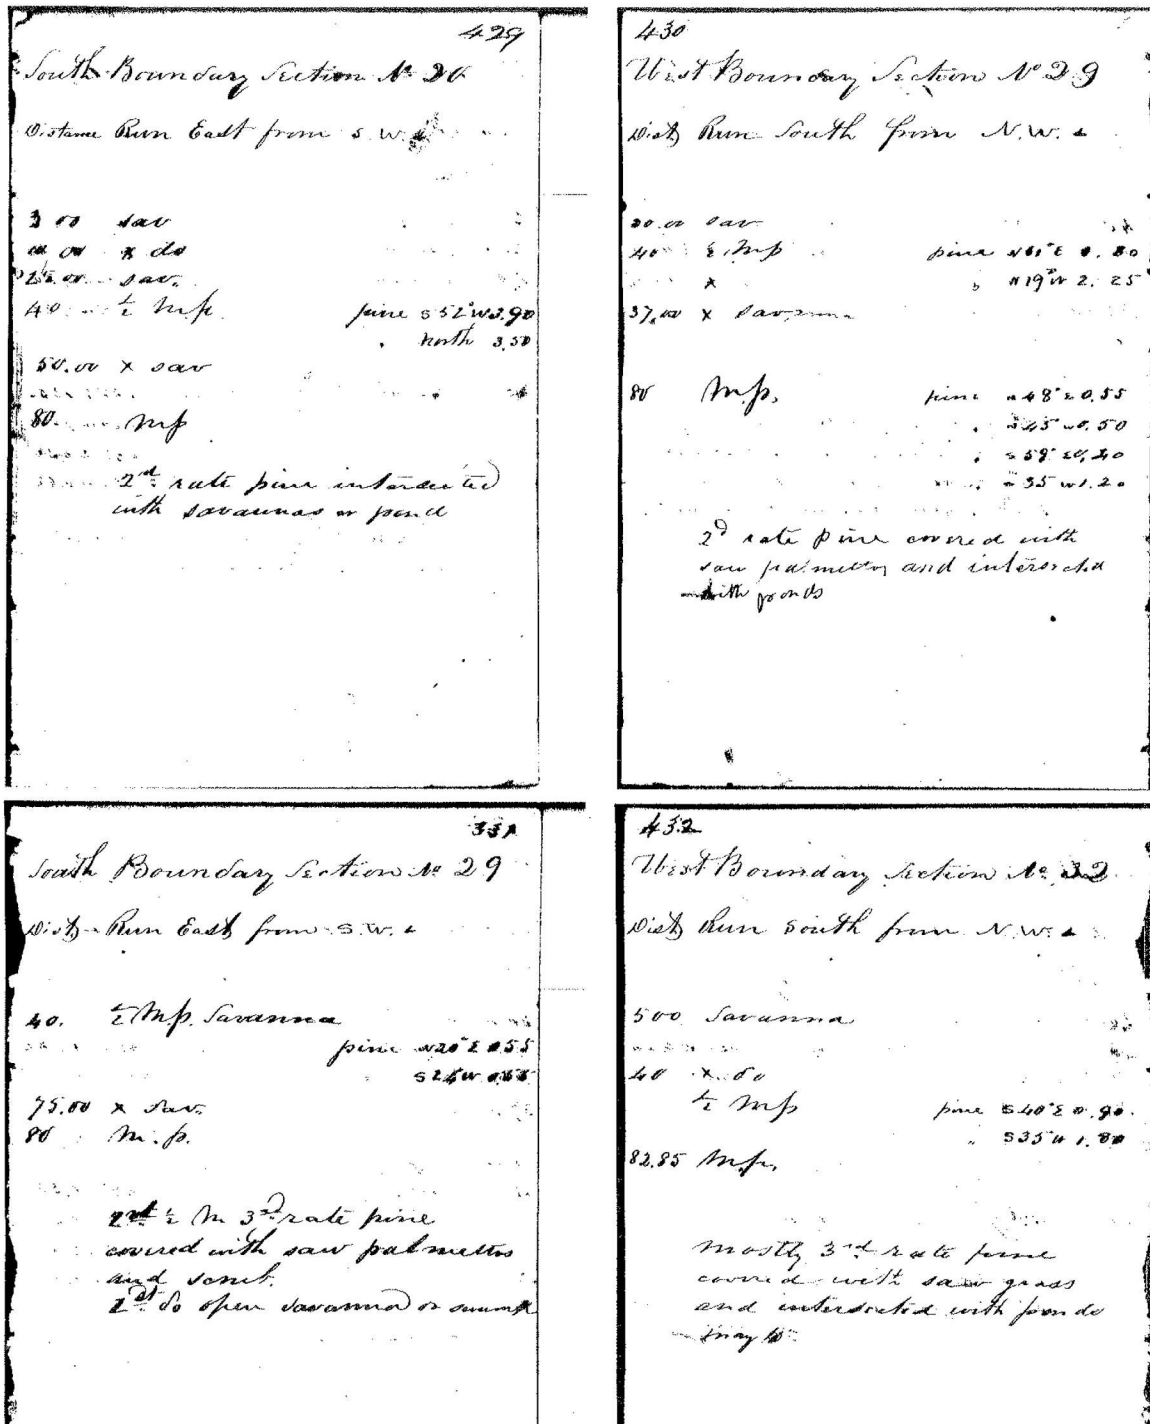 429
South Boundary Section No 20
Distance Run East from S.W.
3 00 sav
x do
25.00 sav.
40 ½ M.p. pine S 52° W 3.90
" north 3.50
50.00 x sav
80. M.p
2nd rate pine intersected
with savannas or pond
430
West Boundary Section No 29
Dist Run South from N.W.
sav
40 ½ M.p pine N 61° E 0.80
x " N 19° W 2.25
37.00 x Savanna
80 M.p. pine 48° E 0.55
" 45 0.50
" S 59° E 0.40
" 35 W 1.20
2d rate pine covered with
saw palmettos and intersected
with ponds
331
South Boundary Section No 29
Dist Run East from S.W.
40. ½ M.p. Savanna
pine N 20° E 0 55
75.00 x Sav.
80 M.p.
½ M 3d rate pine
covered with saw palmettos
and scrub.
do open savanna or swamp
432
West Boundary Section No 32
Dist Run South from N.W.
500 Savanna
40 x do
½ M.p pine S 40° E 0.90
" S 35 W 1.80
82.85 M.p.
Mostly 3rd rate pine
covered with saw grass
and intersected with ponds
May